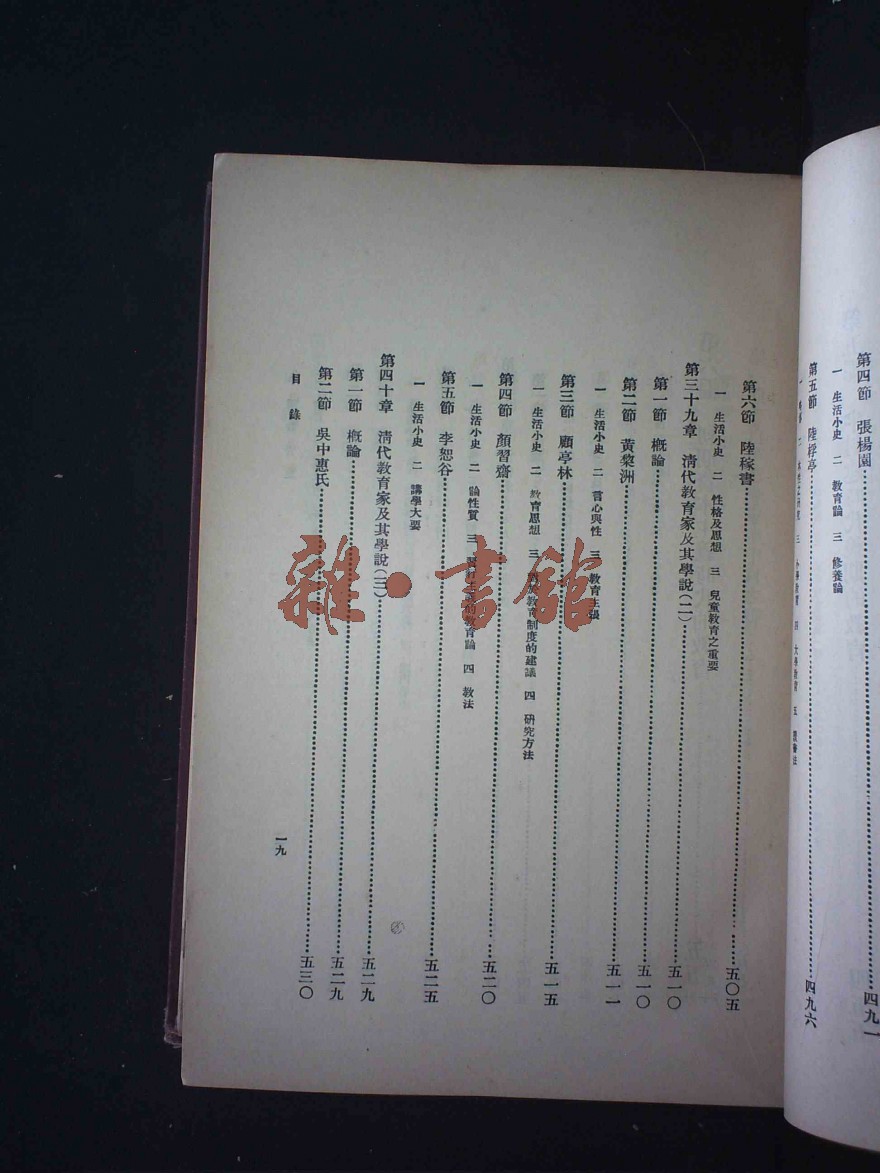 第四節　張楊園……四九一
一　生活小史　二　教育論　三　修養論
第五節　陸桴亭……四九六
三　小學教育　四　大學教育　五
第六節　陸稼書……五〇五
一　生活小史　二　性格及思想　三　兒童教育之重要
第三十九章　清代教育家及其學說（二）……五一〇
第一節　概論……五一〇
第二節　黃棃洲……五一一
一　生活小史　二　言心與性　三　教育主張
第三節　顧亭林……五一五
一　生活小史　二　教育思想　三　教育制度的建議　四　研究方法
第四節　顏習齋……五二〇
一　生活小史　二　論性質　三　的教育論　四　教法
第五節　李恕谷……五二五
一　生活小史　二　講學大要
第四十章　清代教育家及其學說（三）……五二九
第一節　概論……五二九
第二節　吳中惠氏……五三〇
目錄
一九
雜·書館